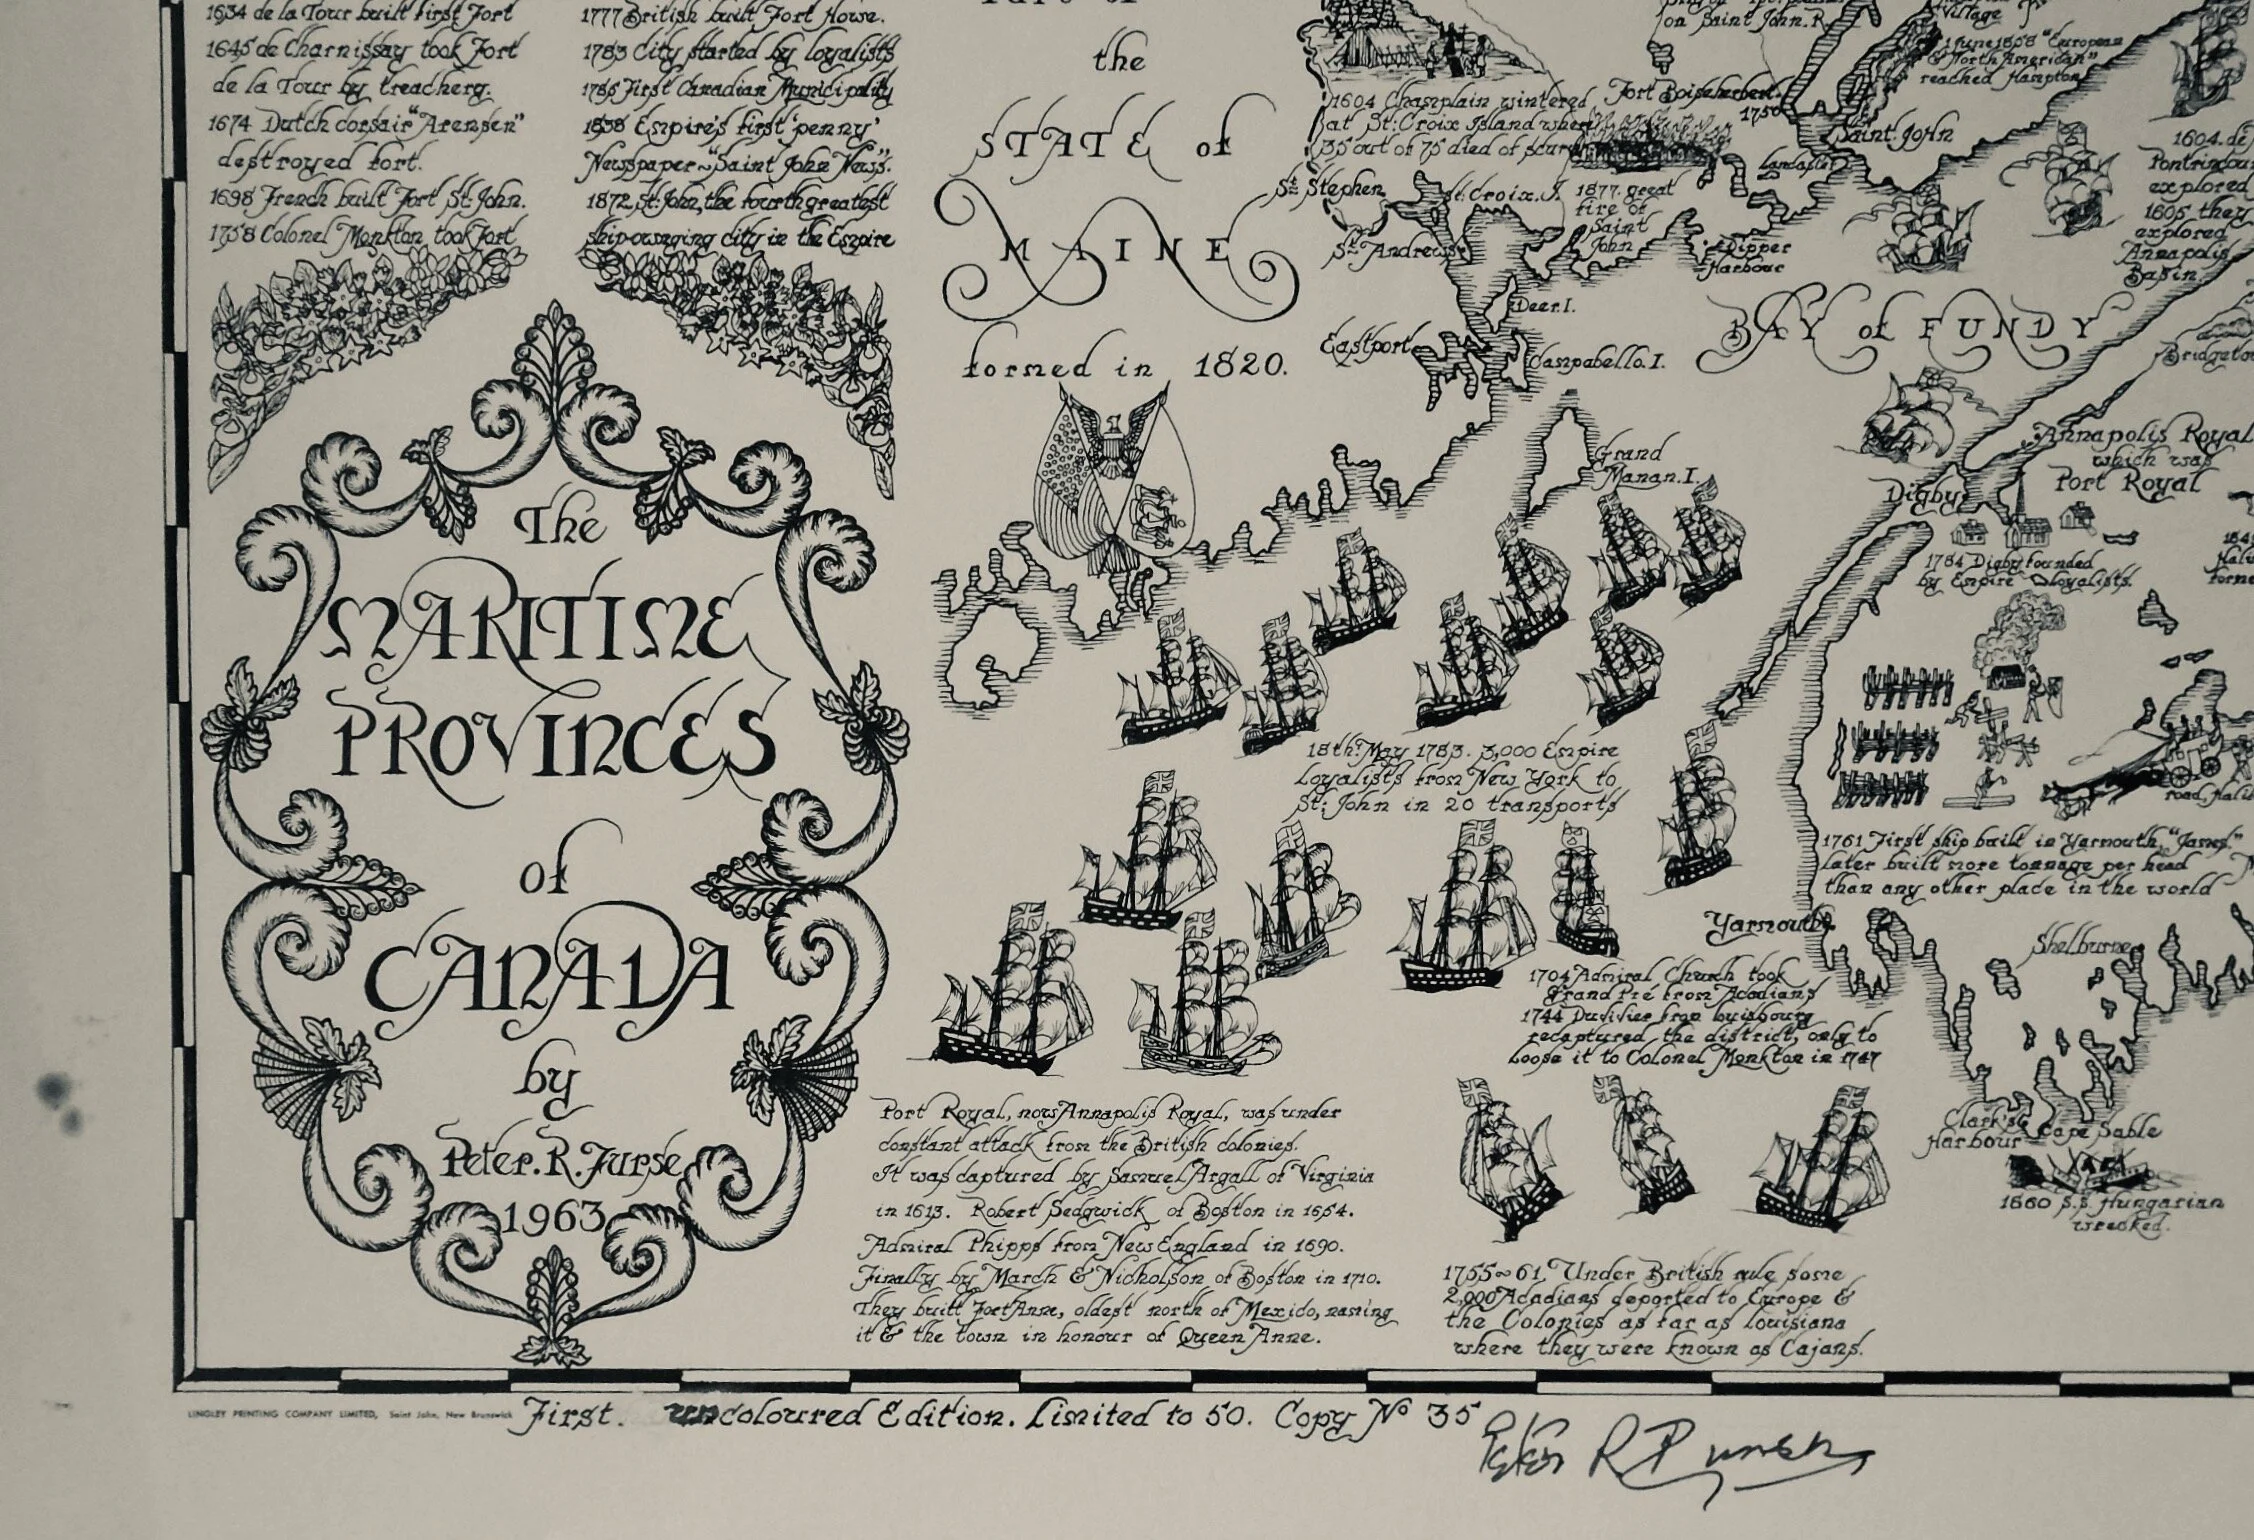 1634 de la Tour built first Fort
1645 de Charnissay took Fort
de la Tour by treachery.
1674 Dutch corsair "Arensen"
destroyed fort.
1698 French built Fort St. John.
1758 Colonel Monkton took Fort
1777 British built Fort Howe.
1783 City started by loyalists
1785 First Canadian Municipality
1838 Empire's first 'penny'
Newspaper~"Saint John News".
1872 St. John, the fourth greatest
ship-owning city in the Empire
The
MARITIME
PROVINCES
of
CANADA
by
Peter. R. Furse
1963
the
STATE of
MAINE
formed in 1820.
on Saint John. R.
Village
1 June 1858 "European
& North American"
reached Hampton
1604 Champlain wintered
at St: Croix Island where
35 out of 75 died of scurvy
Fort Boishebert.
1750
Saint John
Lancaster
St. Stephen
St. Croix. I.
1877. great
fire of
Saint
John
St. Andrews
Dipper
Harbour
Deer. I.
Eastport
Campobello. I.
Grand
Manan. I.
BAY of FUNDY
1604. de
explored
1605 they
explored
Annapolis
Basin.
Annapolis Royal
which was
Port Royal
Digby
1784 Digby founded
by Empire loyalists.
18th. May 1783. 3,000 Empire
Loyalists from New York to
St: John in 20 transports
1761 First ship built in Yarmouth, "James."
later built more tonnage per head
than any other place in the world
Yarmouth.
Shelburne
1704 Admiral Church took
Grand Pré from Acadians
1744 Duvivier from Louisbourg
recaptured the district, only to
loose it to Colonel Monkton in 1747
Clark's
Harbour
Cape Sable
1860 S.S. Hungarian
wrecked.
Port Royal, now Annapolis Royal, was under
constant attack from the British colonies.
It was captured by Samuel Argall of Virginia
in 1613. Robert Sedgwick of Boston in 1654.
Admiral Phipps from New England in 1690.
Finally by March & Nicholson of Boston in 1710.
They built Fort Anne, oldest north of Mexico, naming
it & the town in honour of Queen Anne.
1755~61. Under British rule some
2,000 Acadians deported to Europe &
the Colonies as far as Louisiana
where they were known as Cajans.
LINGLEY PRINTING COMPANY LIMITED, Saint John, New Brunswick
First. uncoloured Edition. Limited to 50. Copy No 35